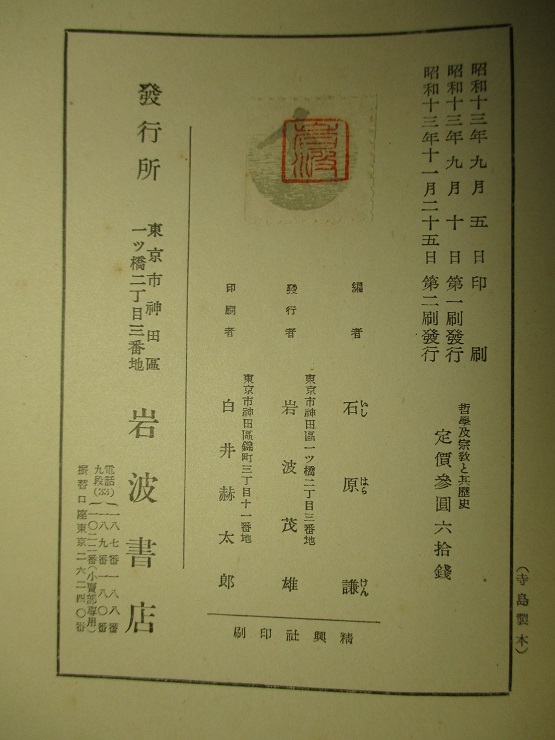 昭和十三年九月五日印刷
昭和十三年九月十日第一刷發行
昭和十三年十一月二十五日第二刷發行
哲學及宗敎と其歷史
定價參圓六拾錢
編者
石原謙
いし はら けん
發行者
東京市神田區一ツ橋二丁目三番地
岩波茂雄
印刷者
東京市神田區錦町三丁目十一番地
白井赫太郎
精興社印刷
發行所
東京市神田區
一ツ橋二丁目三番地
岩波書店
電話
九段(33)
一八七番一八八番
一八九番一八〇番
二〇二二番(小賣部專用)
振替口座東京二六二四〇番
(寺島製本)